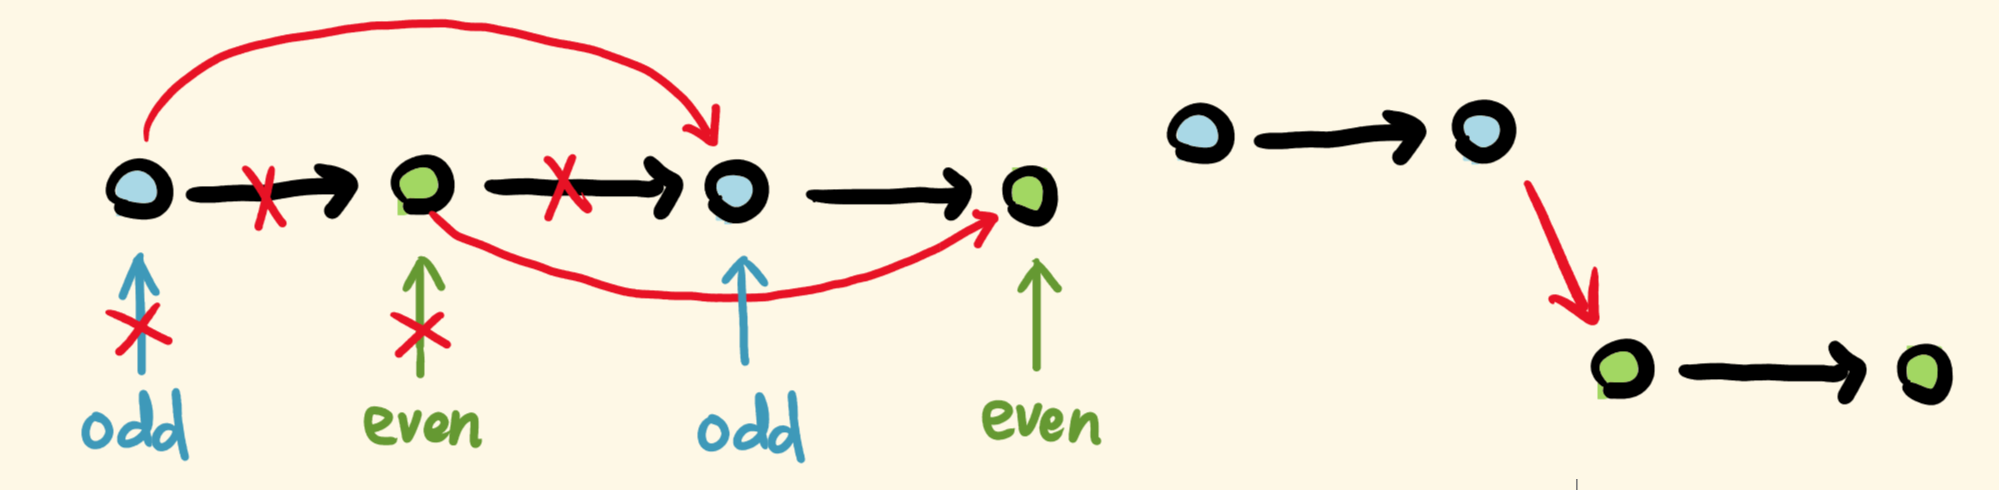 odd even odd even